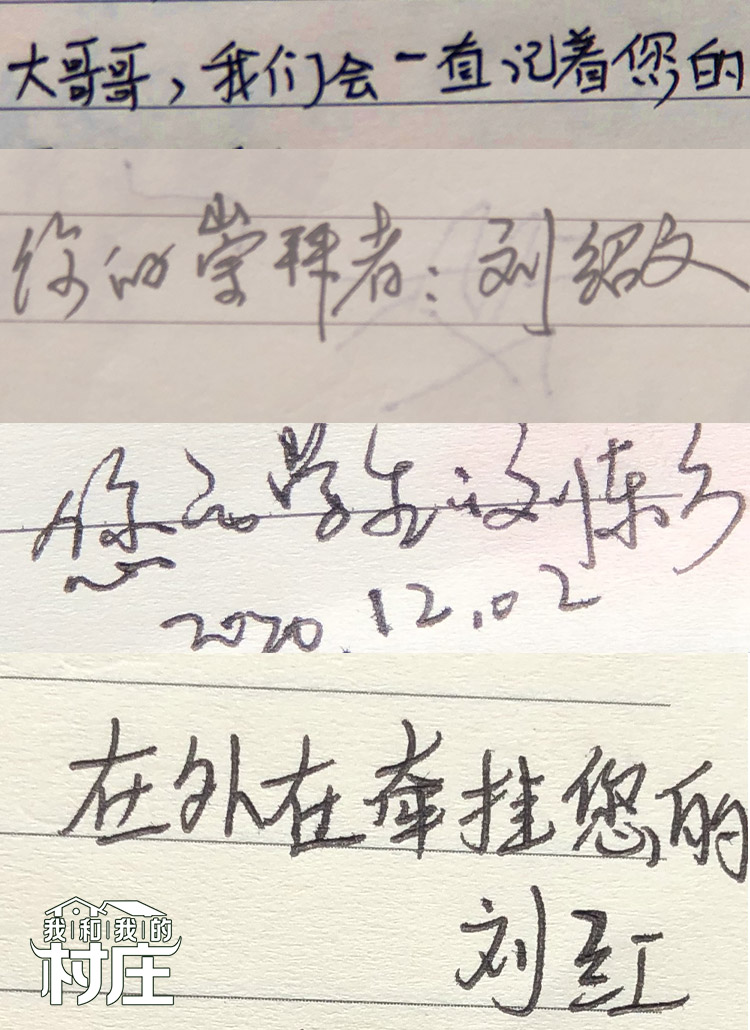 大哥哥，我们会一直记着您的
你的崇拜者：刘绍文
您的学生：刘
2020.12.02
在外在牵挂您的
刘红
我和我的
村庄